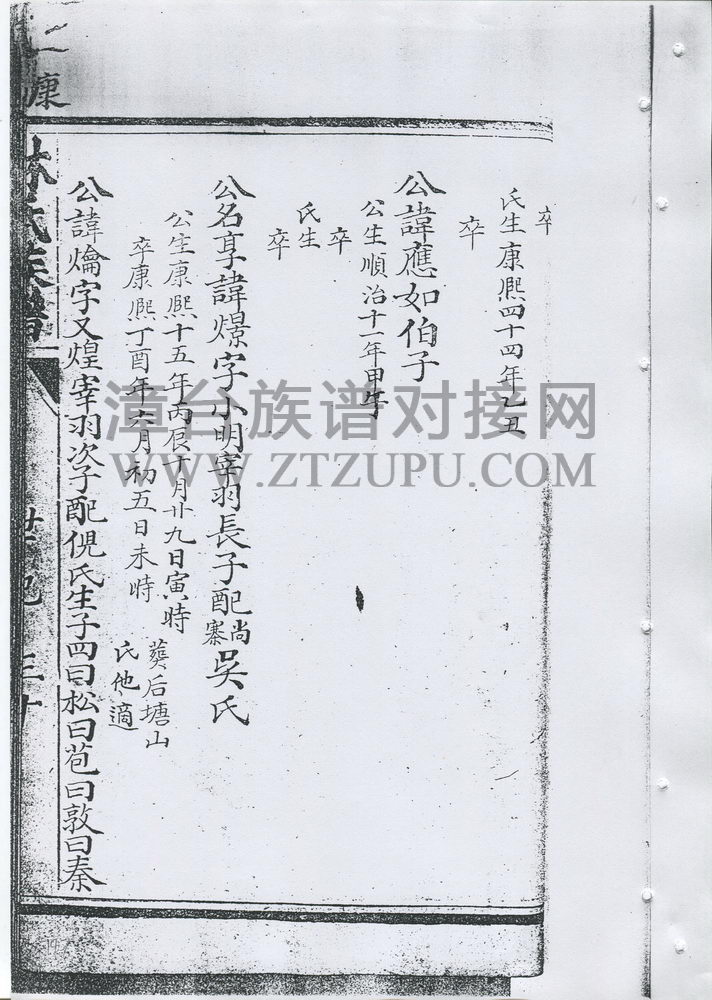 卒
氏生康熙四十四年乙丑
卒
公諱應如伯子
公生順治十一年甲午
卒
氏生
卒
公名享諱燝字小明宰羽長子配尚寨吳氏
公生康熙十五年丙辰十月廿九日寅時
卒康熙丁酉年六月初五日未時
葵后塘山
氏他適
公諱爚字又煌宰羽次子配倪氏生子四曰松曰苞曰敦曰秦
林氏族譜
三十
康
漳台族谱对接网
WWW.ZTZUPU.COM